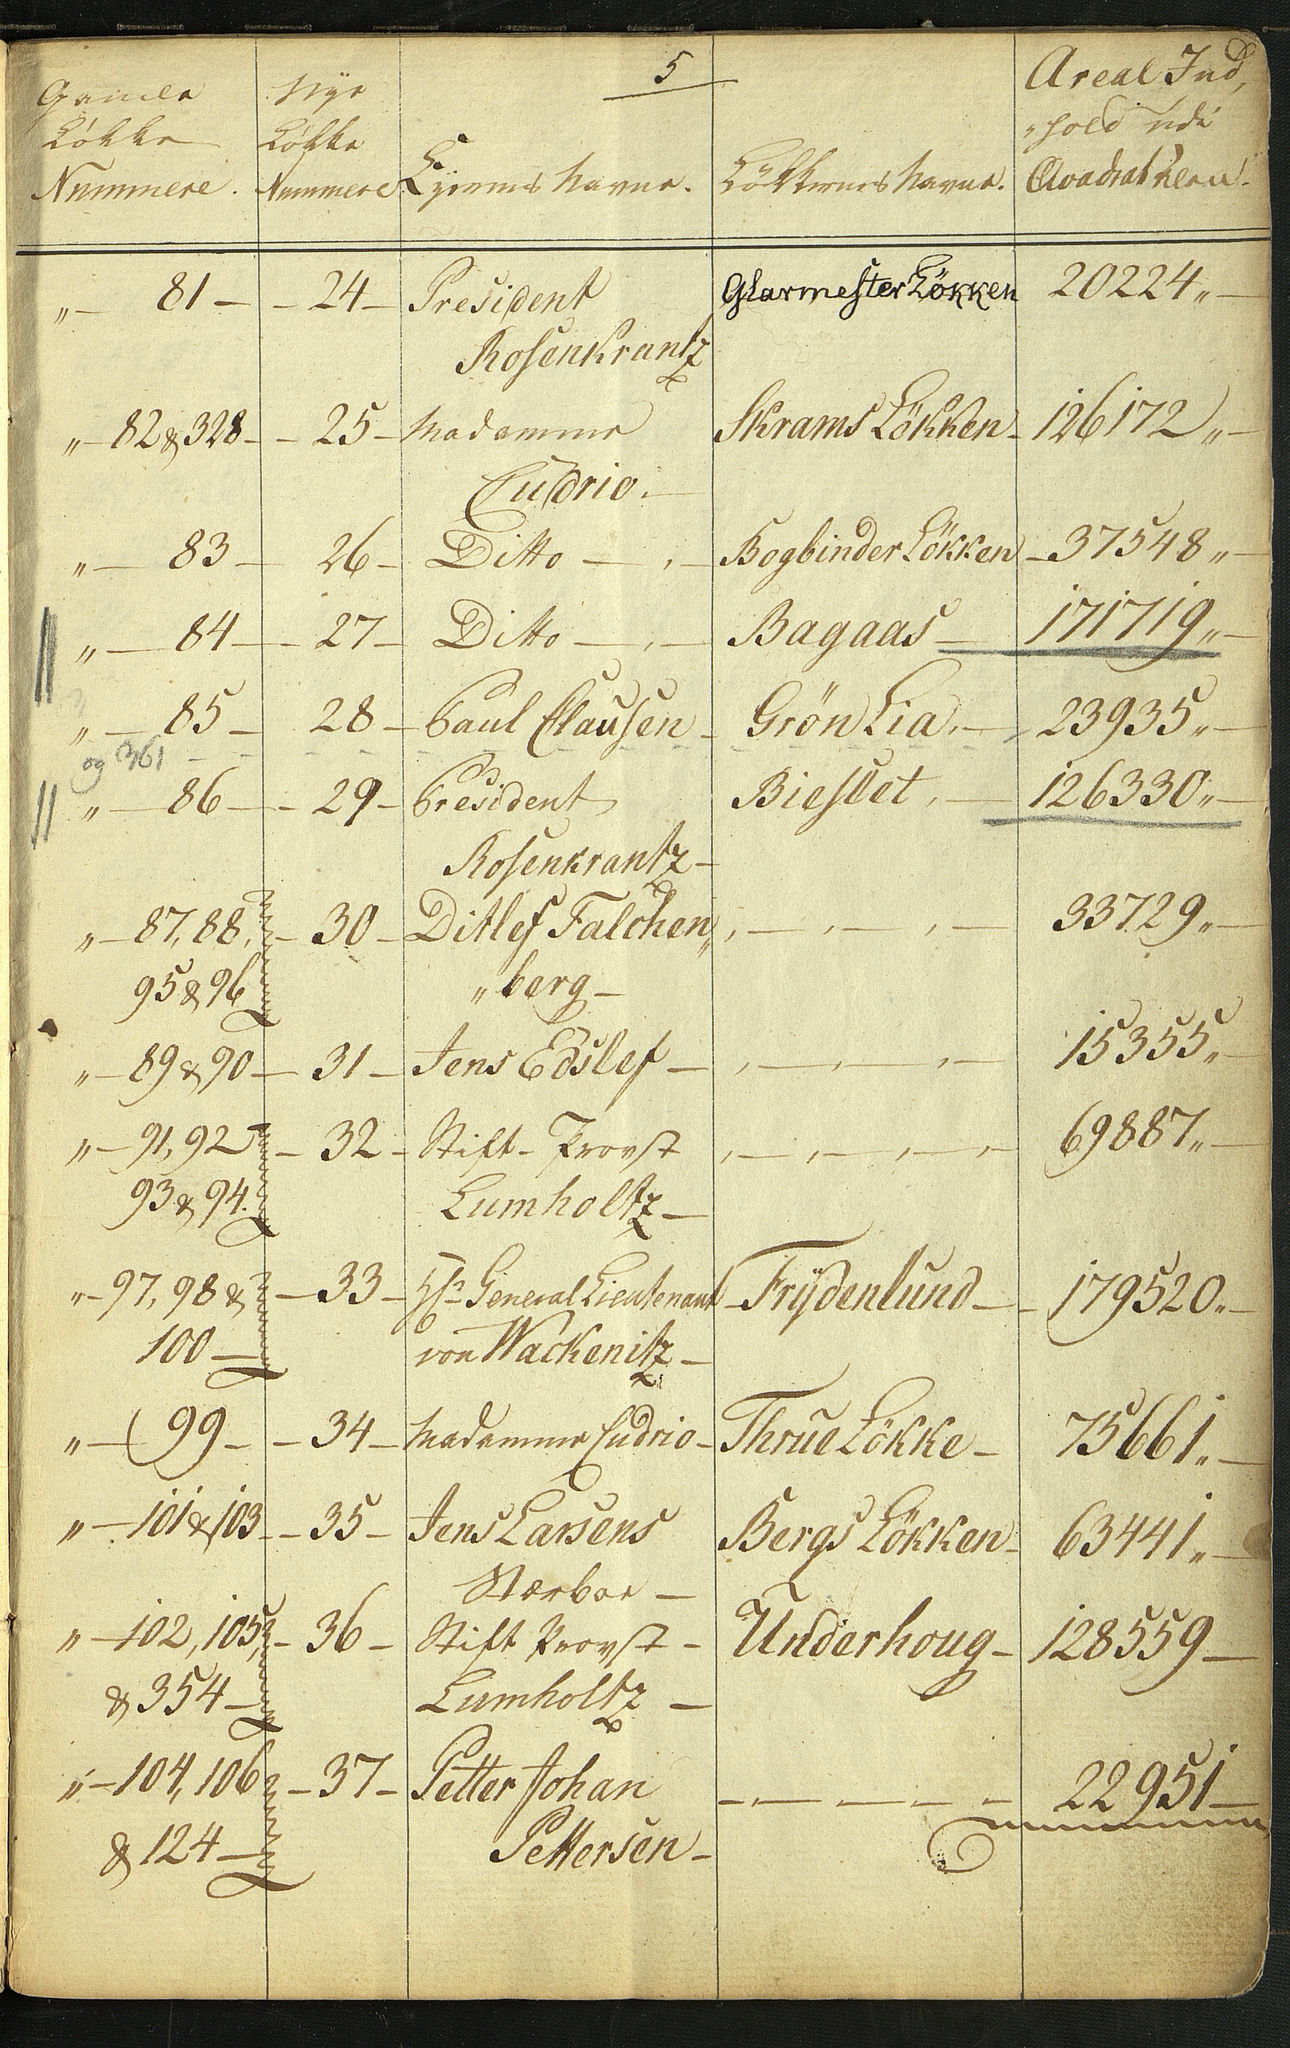 5
Gamle Løkke Nummere.
Nye Løkke Nummere
Eyernes Navne.
Løkkernes Navne.
Areal Ind„
„hold udi
Qvadrat Alen.
„— 81 — — 24 — President GlarmesterLökken 20224„—
Rosenkrantz
„— 82 & 328 — — 25 — Madamme Skrams Lökken — 126172„—
Cudrio.—
„— 83 — 26 — Ditto — „— Bogbinder Lökken — 37548„—
„— 84 — — 27 — Ditto — „— Bagaas — 171719„—
„— 85 — 28 — Paul Clausen — Grön Lia.— 23935„—
og 361
„— 86 — — 29 — President Bieslet.— 126330„—
Rosenkrantz —
„— 87, 88, — 30 — Ditlef Falchen„ „—„—„— 33729„—
95 & 96 „berg —
„— 89 & 90 — 31 — Jens Edslef — „—„—„— 15355„—
„— 91, 92 — 32 — Stift-Provst „—„—„— 69887„—
93 & 94. Lumholtz —
„— 97, 98 & — 33 — General Lieutenant — Frÿdenlund — 179520„—
100 — von Wackenitz —
„— 99 — — 34 — Madamme Cudrio — Thrue Lökke — 75661„—
„— 101 & 103 — — 35 — Jens Larsens Bergs Lökken — 63441„—
Stærboe —
„— 102, 105, — 36 — Stift Provst — Underhoug — 128559 —
& 354 — Lumholtz —
„— 104, 106 — 37 — Petter Johan — — — — 22951 —
& 124 — Pettersen —